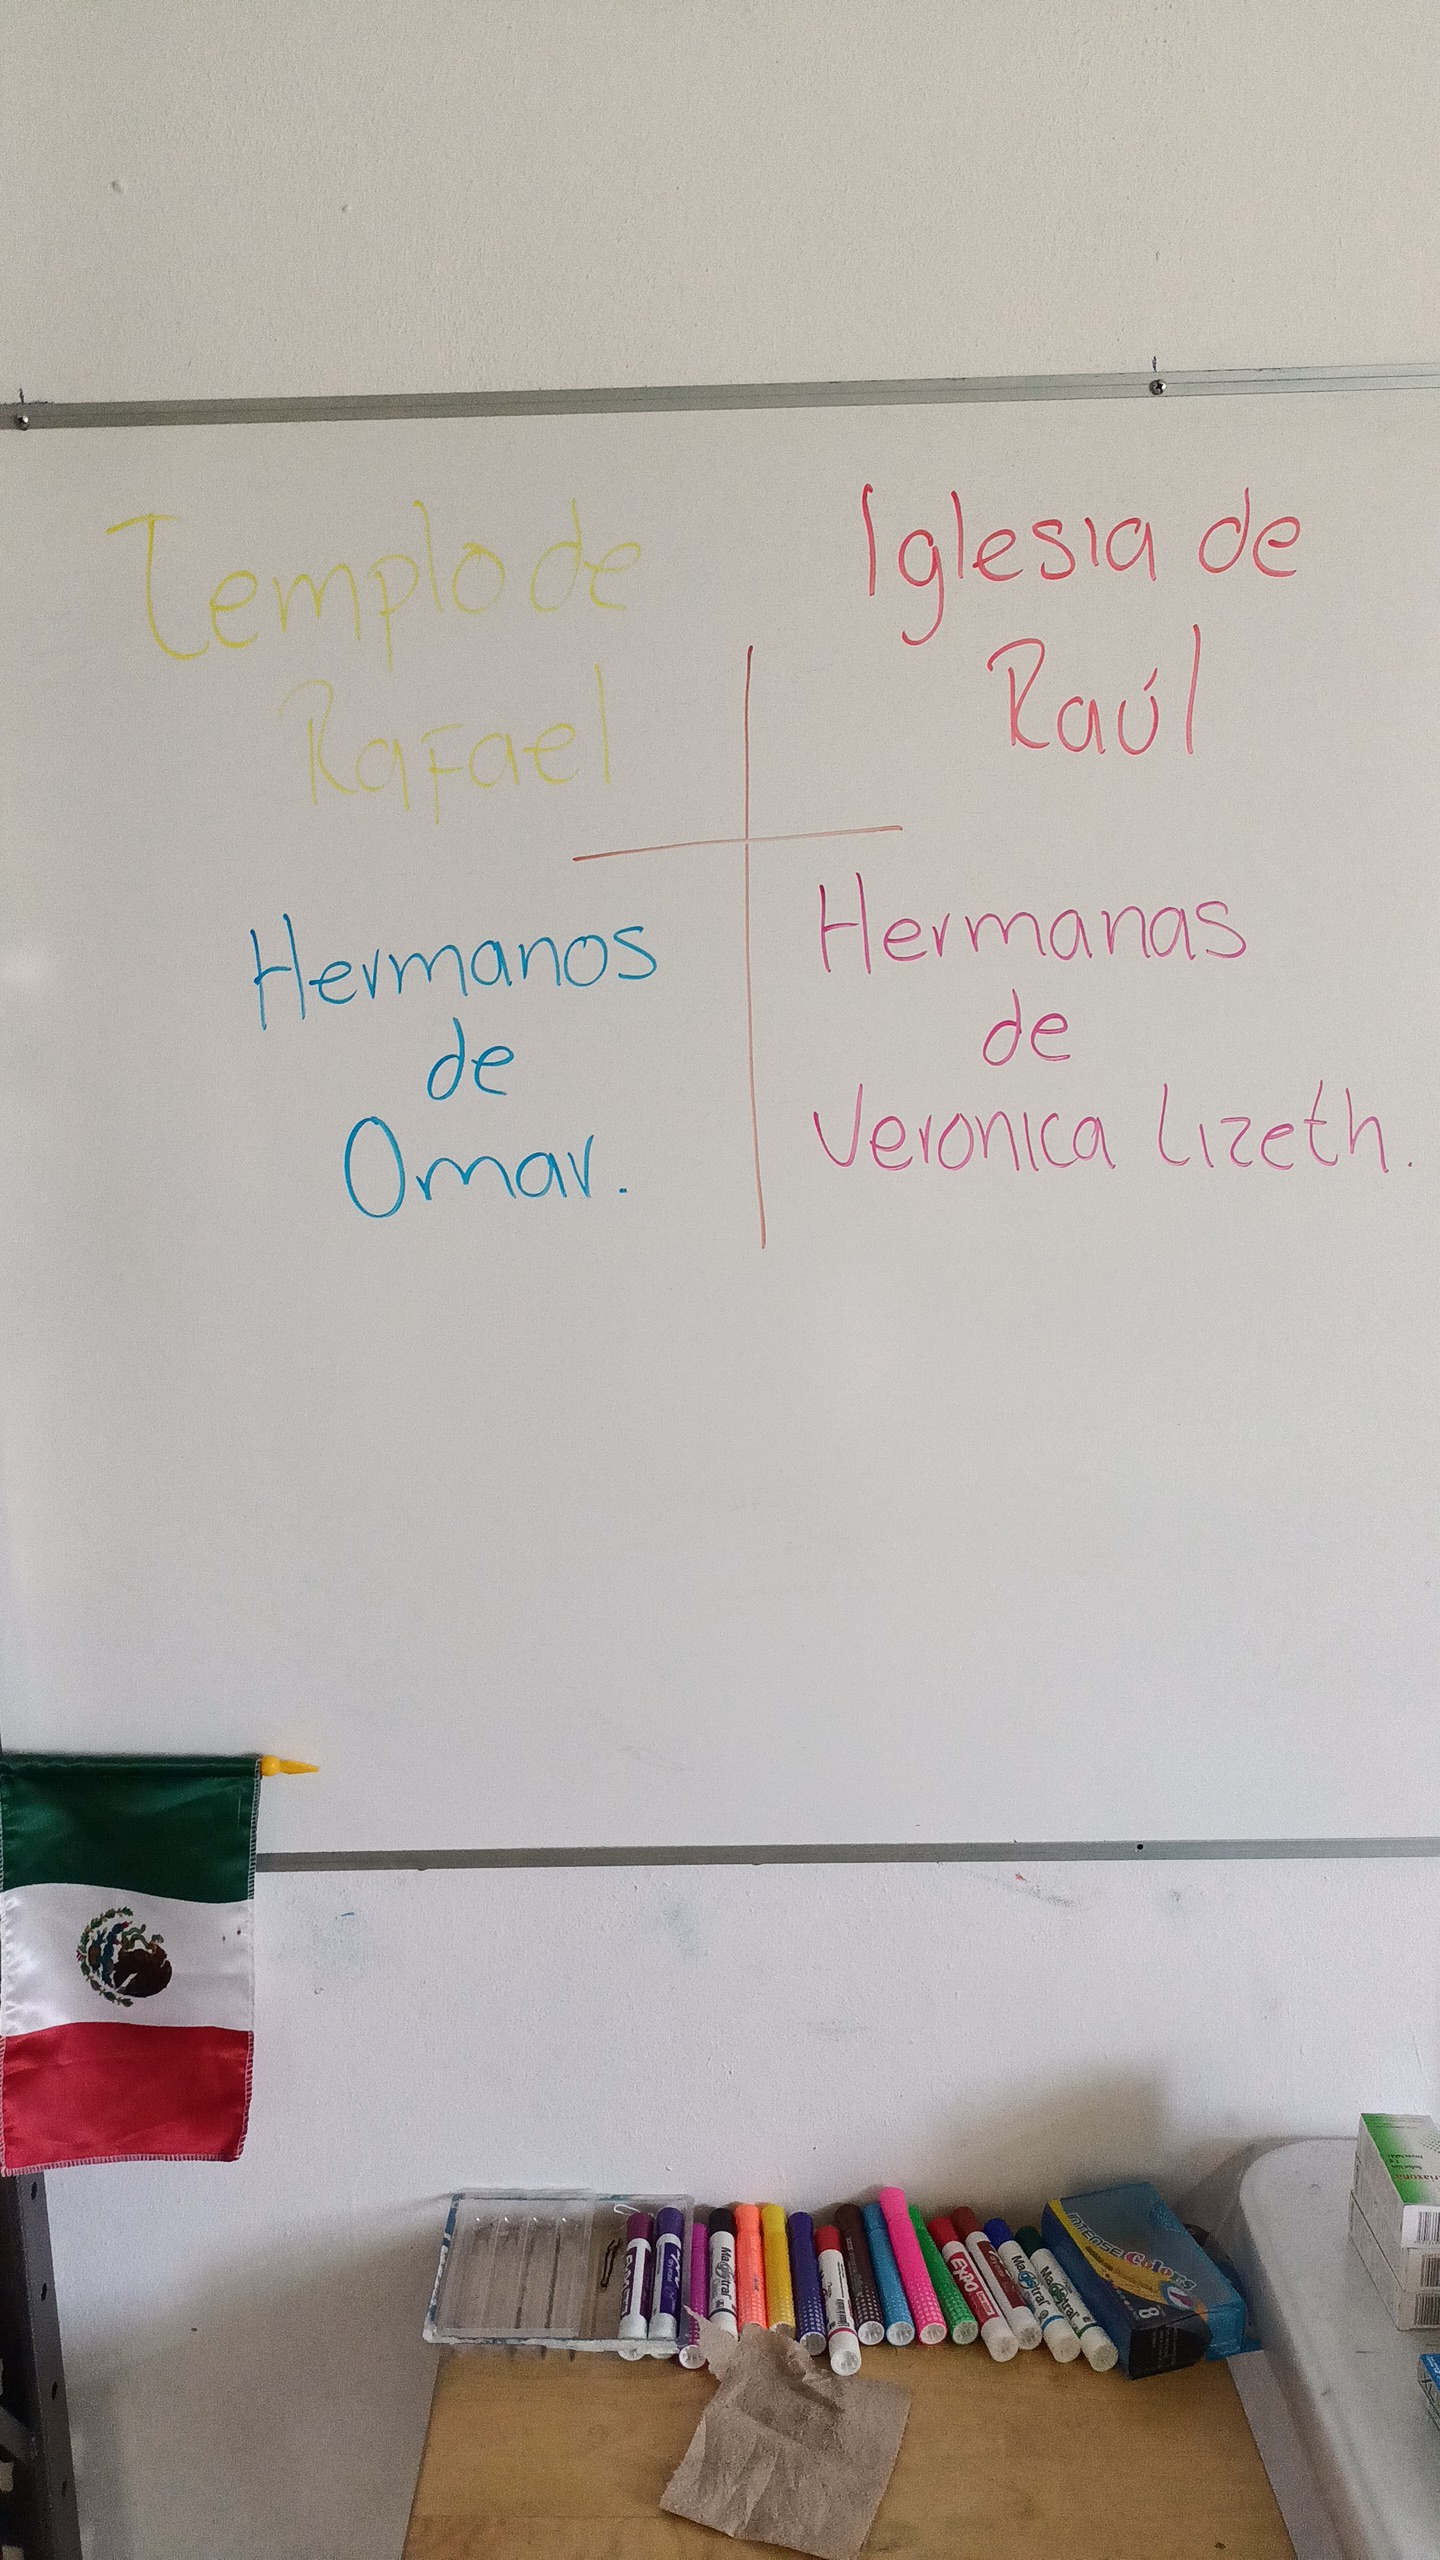 Templo de
Rafael
Iglesia de
Raúl
Hermanos
de
Omar.
Hermanas
de
Veronica Lizeth.
Magistral
EXPO
Magistral
Magistral
INTENSE Colors
8